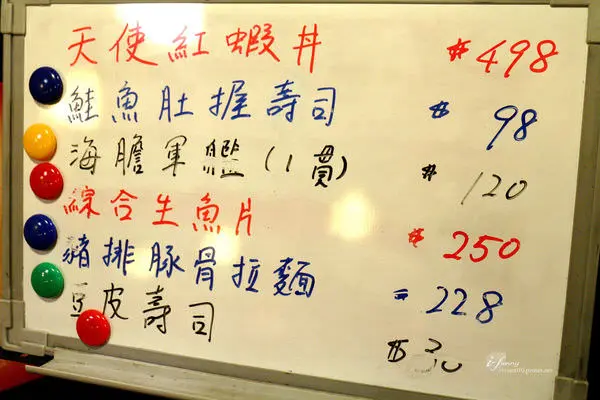 天使紅蝦丼 $498
鮭魚肚握壽司 $98
海膽軍艦(1貫) $120
綜合生魚片 $250
豬排豚骨拉麵 $228
豆皮壽司 $30